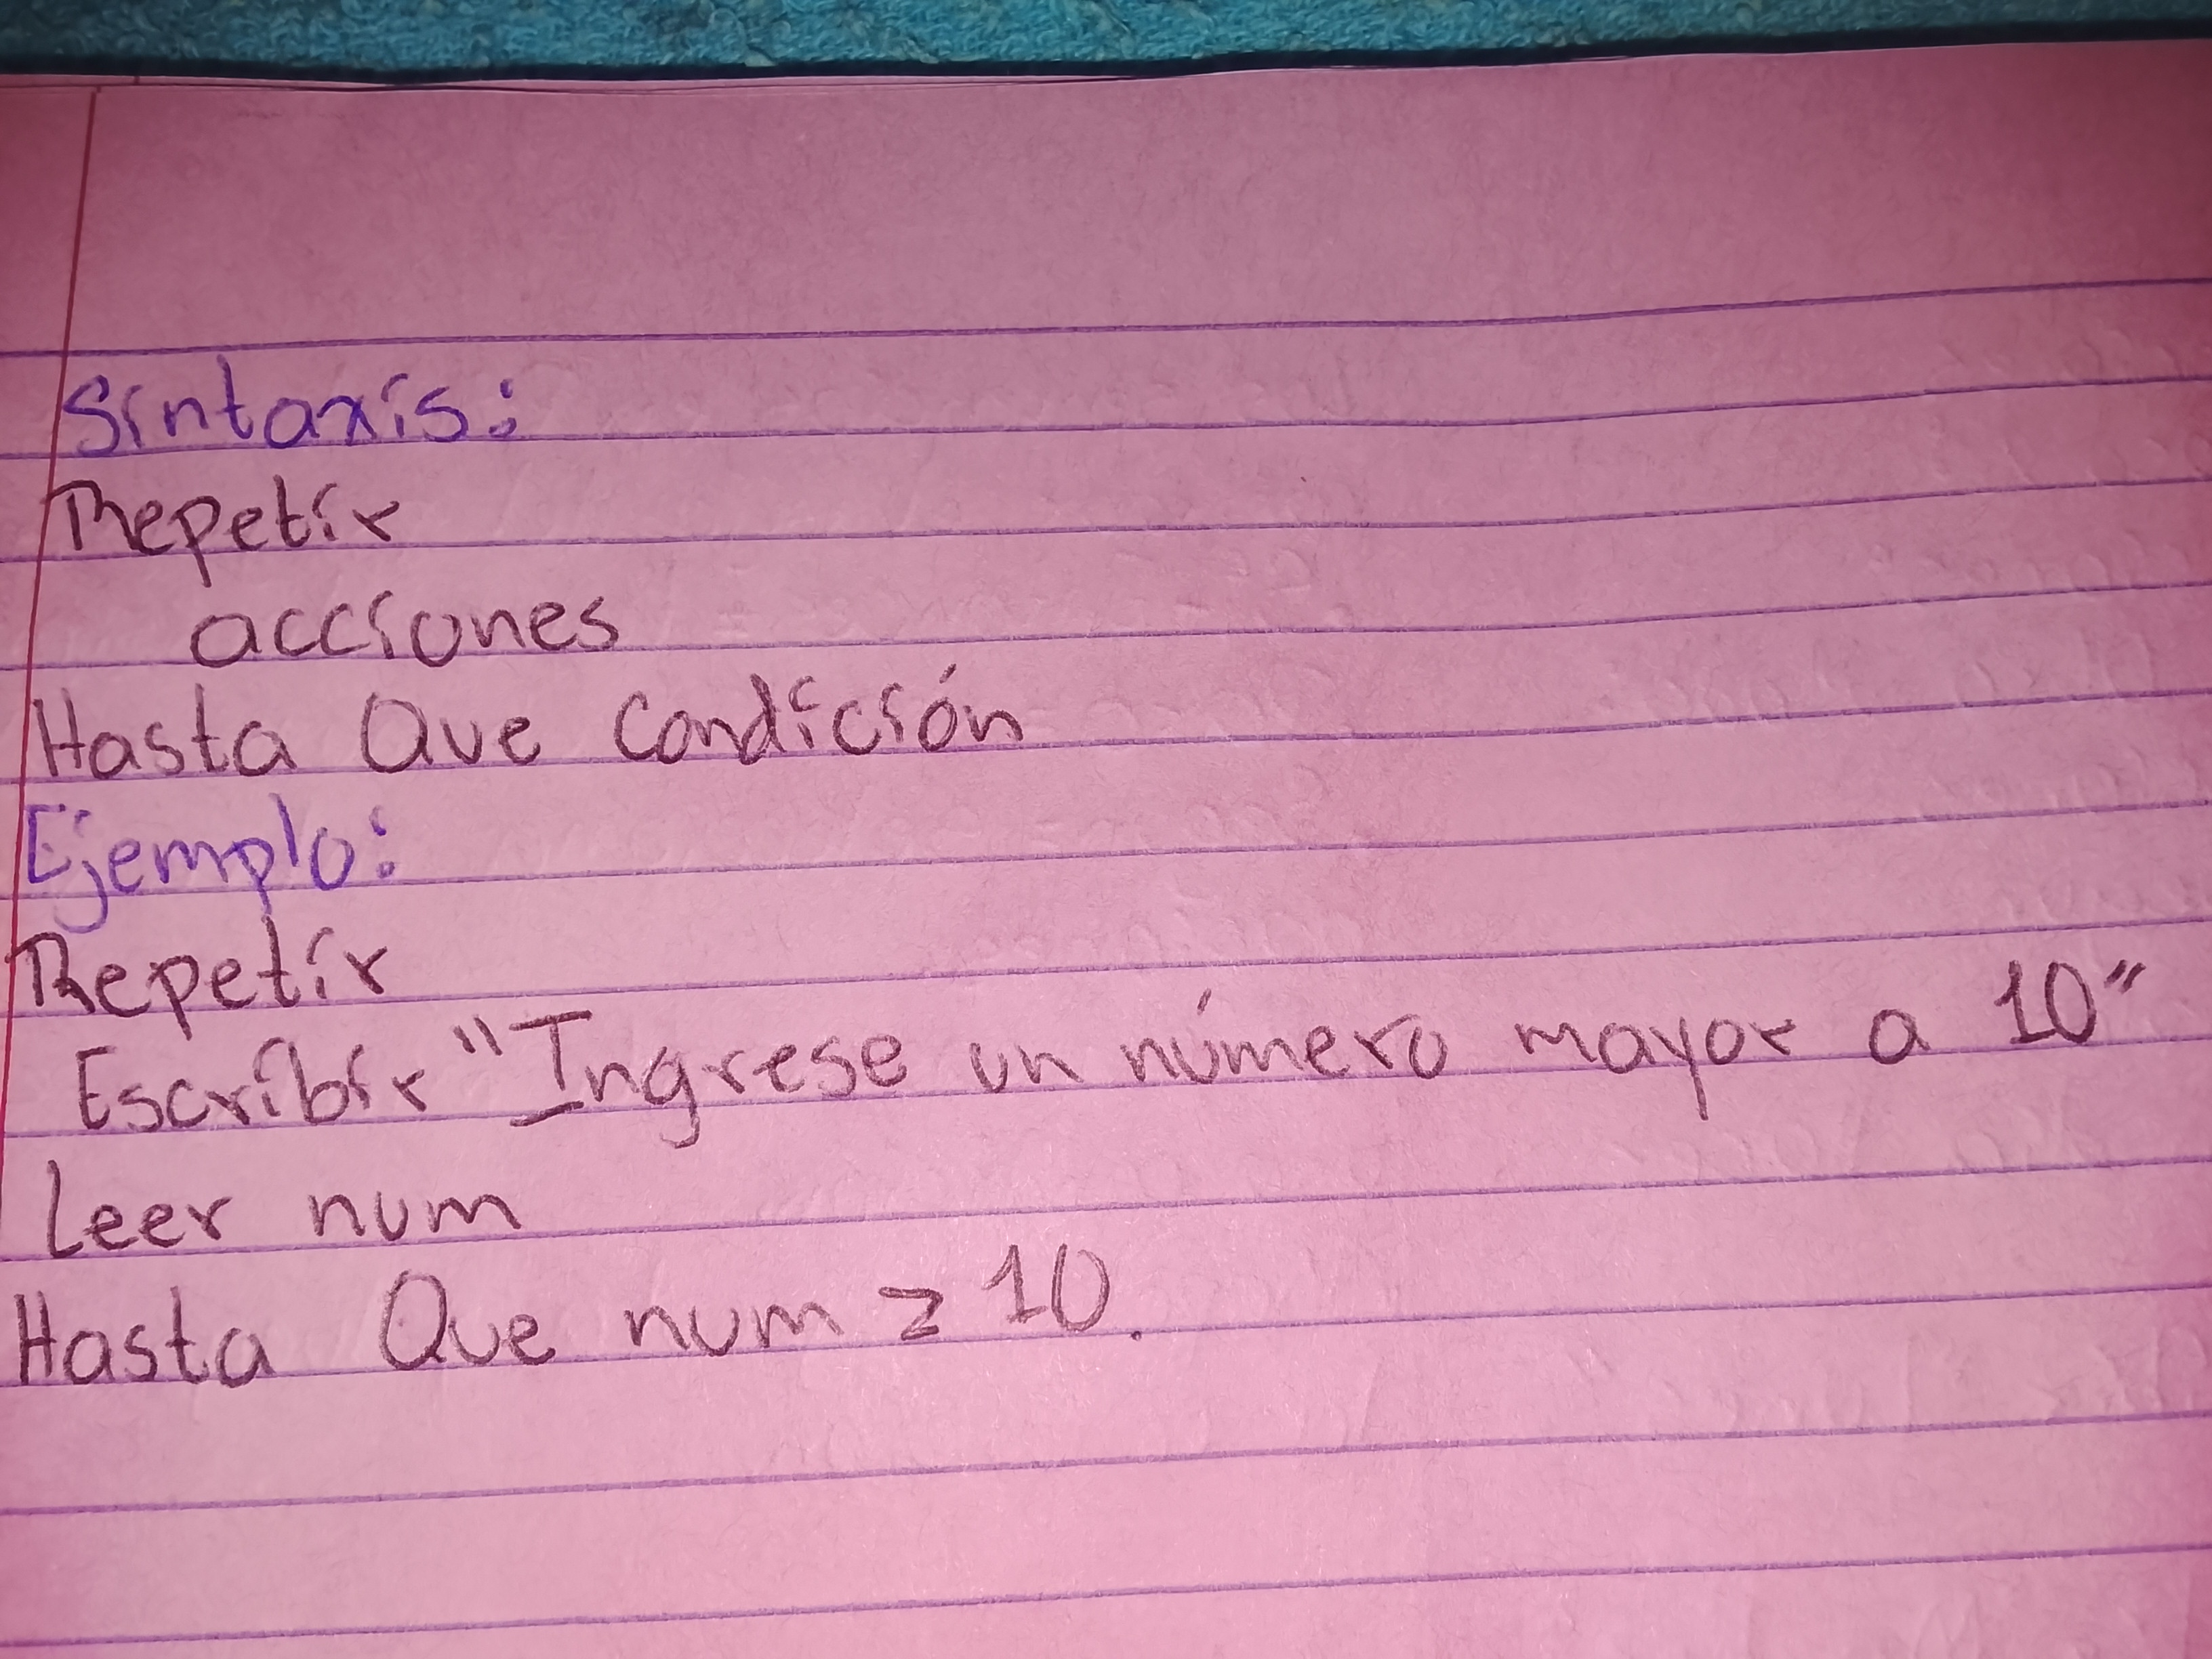 Sintaxis:
Repetir
acciones
Hasta Que condición
Ejemplo:
Repetir
Escribir "Ingrese un número mayor a 10"
Leer num
Hasta Que num ≥ 10.